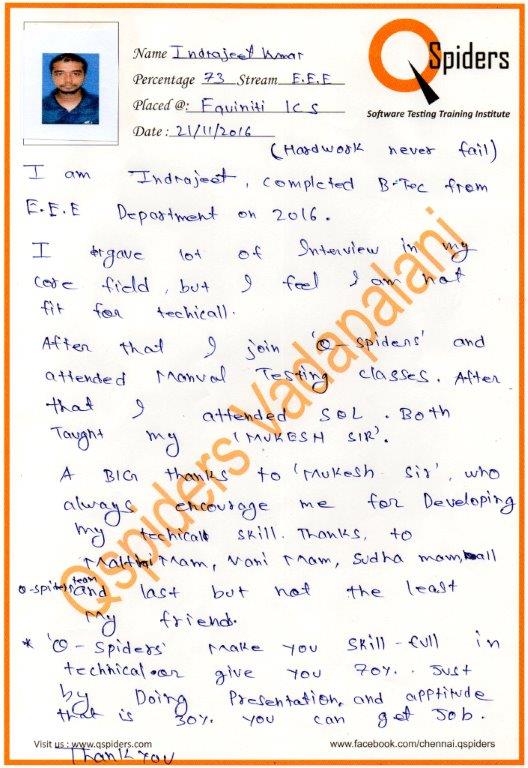 Name Indrajeet Kumar
Percentage 73 Stream E.E.E
Placed @: Equiniti ICS
Date : 21/11/2016
QSpiders
Software Testing Training Institute
(Hardwork never fail)
I am Indrajeet, completed B-Tec from
E.E.E Department on 2016.
I gave lot of Interview in my
core field, but I feel I am not
fit for techicall.
After that I join 'Q-spiders' and
attended Manual Testing classes. After
that I attended SQL. Both
Taught my 'MUKESH SIR'.
A BIG thanks to 'Mukesh Sir', who
always encourage me for Developing
my techical skill. Thanks, to
Mam, Vani Mam, Sudha mam, all
Q-spiders team and last but not the least
My friend.
* 'Q-Spiders' make you skill-full in
technical or give you 70%. Just
by Doing Presentation, and apptitude
that is 30% you can get Job.
Thank you
Qspiders Vadapalani
Visit us : www.qspiders.com
www.facebook.com/chennai.qspiders